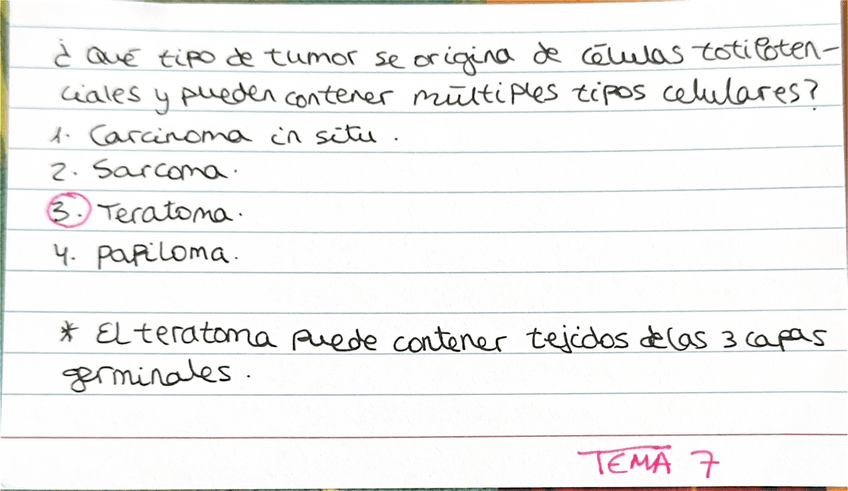 ¿ Qué tipo de tumor se origina de células totipoten-
ciales y pueden contener múltiples tipos celulares?
1. Carcinoma in situ.
2. Sarcoma.
3. Teratoma.
4. Papiloma.
* El teratoma puede contener tejidos de las 3 capas
germinales.
TEMA 7